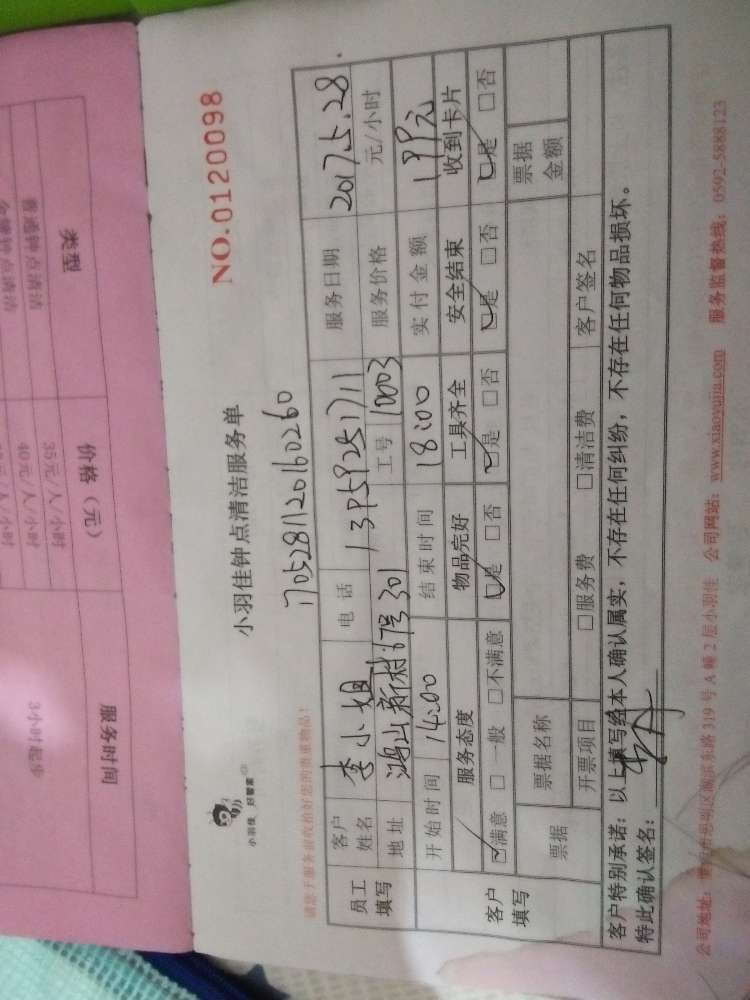 NO.0120098
小羽佳钟点清洁服务单
1705281120160260
小羽佳 好管家
请您于服务前收拾好您的贵重物品!
员工填写
客户姓名 李小姐 电话 13959251711 服务日期 2017.5.28
地址 鸿山新村67号301 工号 10003 服务价格 元/小时
开始时间 14:00 结束时间 18:00 实付金额 199元
客户填写
服务态度 物品完好 工具齐全 安全结束 收到卡片
☑满意 □一般 □不满意 ☑是 □否 ☑是 □否 ☑是 □否 ☑是 □否
票据 票据名称 票据金额
开票项目 □服务费 □清洁费 客户签名
客户特别承诺:以上填写经本人确认属实,不存在任何纠纷,不存在任何物品损坏。
特此确认签名:
公司地址:厦门市思明区湖滨东路 319 号 A 幢 2 层小羽佳 公司网站:www.xiaoyujia.com 服务监督热线:0592-5888123
类型 价格(元) 服务时间
普通钟点清洁 35元/人/小时 3小时起步
40元/人/小时